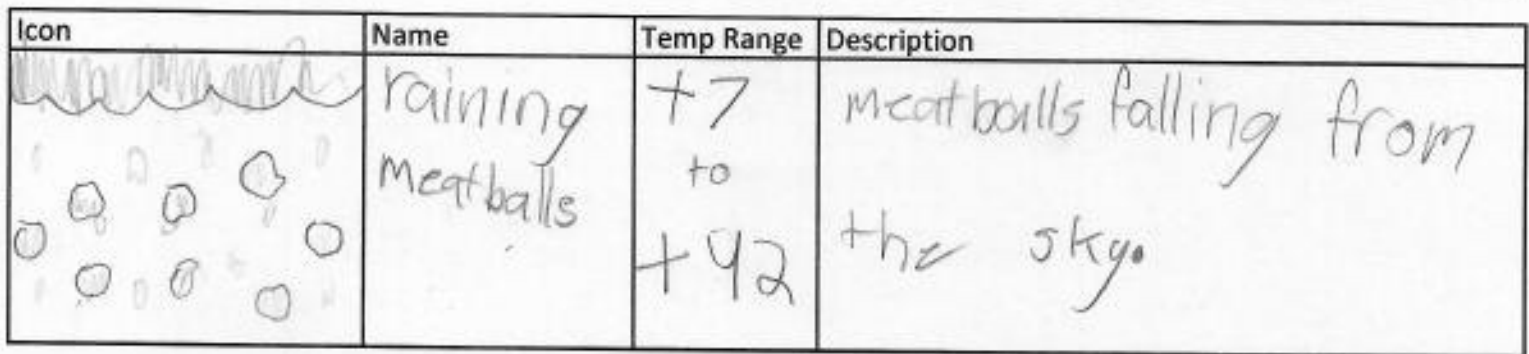 Icon
Name
Temp Range
Description
raining
meatballs
+7
to
+42
meatballs falling from
the sky.